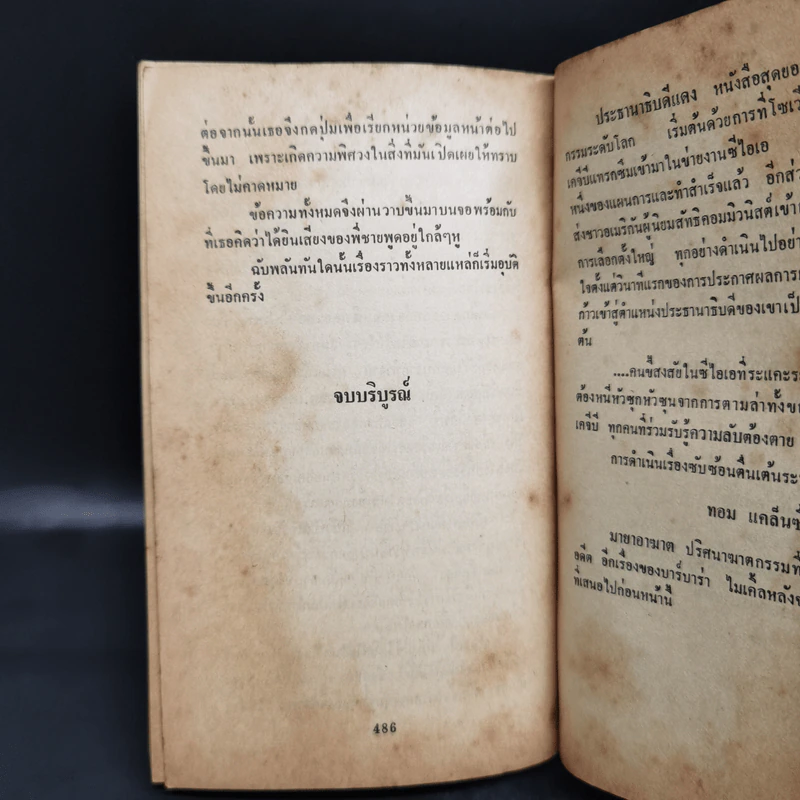 ต่อจากนั้นเธอจึงกดปุ่มเพื่อเรียกหน่วยข้อมูลหน้าต่อไป
ขึ้นมา เพราะเกิดความพิศวงในสิ่งที่มันเปิดเผยให้ทราบ
โดยไม่คาดหมาย
ข้อความทั้งหมดจึงผ่านวาบขึ้นมาบนจอพร้อมกับ
ที่เธอคิดว่าได้ยินเสียงของพี่ชายพูดอยู่ใกล้ๆหู
ฉับพลันทันใดนั้นเรื่องราวทั้งหลายแหล่ก็เริ่มอุบัติ
ขึ้นอีกครั้ง
จบบริบูรณ์
486
ประธานาธิบดีแดง หนังสือสุดยอ
กรรมระดับโลก เริ่มต้นด้วยการที่โซเวี
เคจีบีแทรกซึมเข้ามาในข่ายงานซีไอเอ
หนึ่งของแผนการและทำสำเร็จแล้ว อีกส่ว
ส่งชาวอเมริกันผู้นิยมลัทธิคอมมิวนิสต์เข้า
การเลือกตั้งใหญ่ ทุกอย่างดำเนินไปอย่า
ใจตั้งแต่วินาทีแรกของการประกาศผลการ
ก้าวเข้าสู่ตำแหน่งประธานาธิบดีของเขาเป็
ต้น
....คนขี้สงสัยในซีไอเอที่ระแคะระ
ต้องหนีหัวซุกหัวซุนจากการตามล่าทั้งขอ
เคจีบี ทุกคนที่ร่วมรับรู้ความลับต้องตาย
การดำเนินเรื่องซับซ้อนตื่นเต้นระ
ทอม แคล็นซี
มายาอาฆาต ปริศนาฆาตกรรมที่
อดีต อีกเรื่องของบาร์บาร่า ไมเคิ้ลหลังจ
ที่เสนอไปก่อนหน้านี้